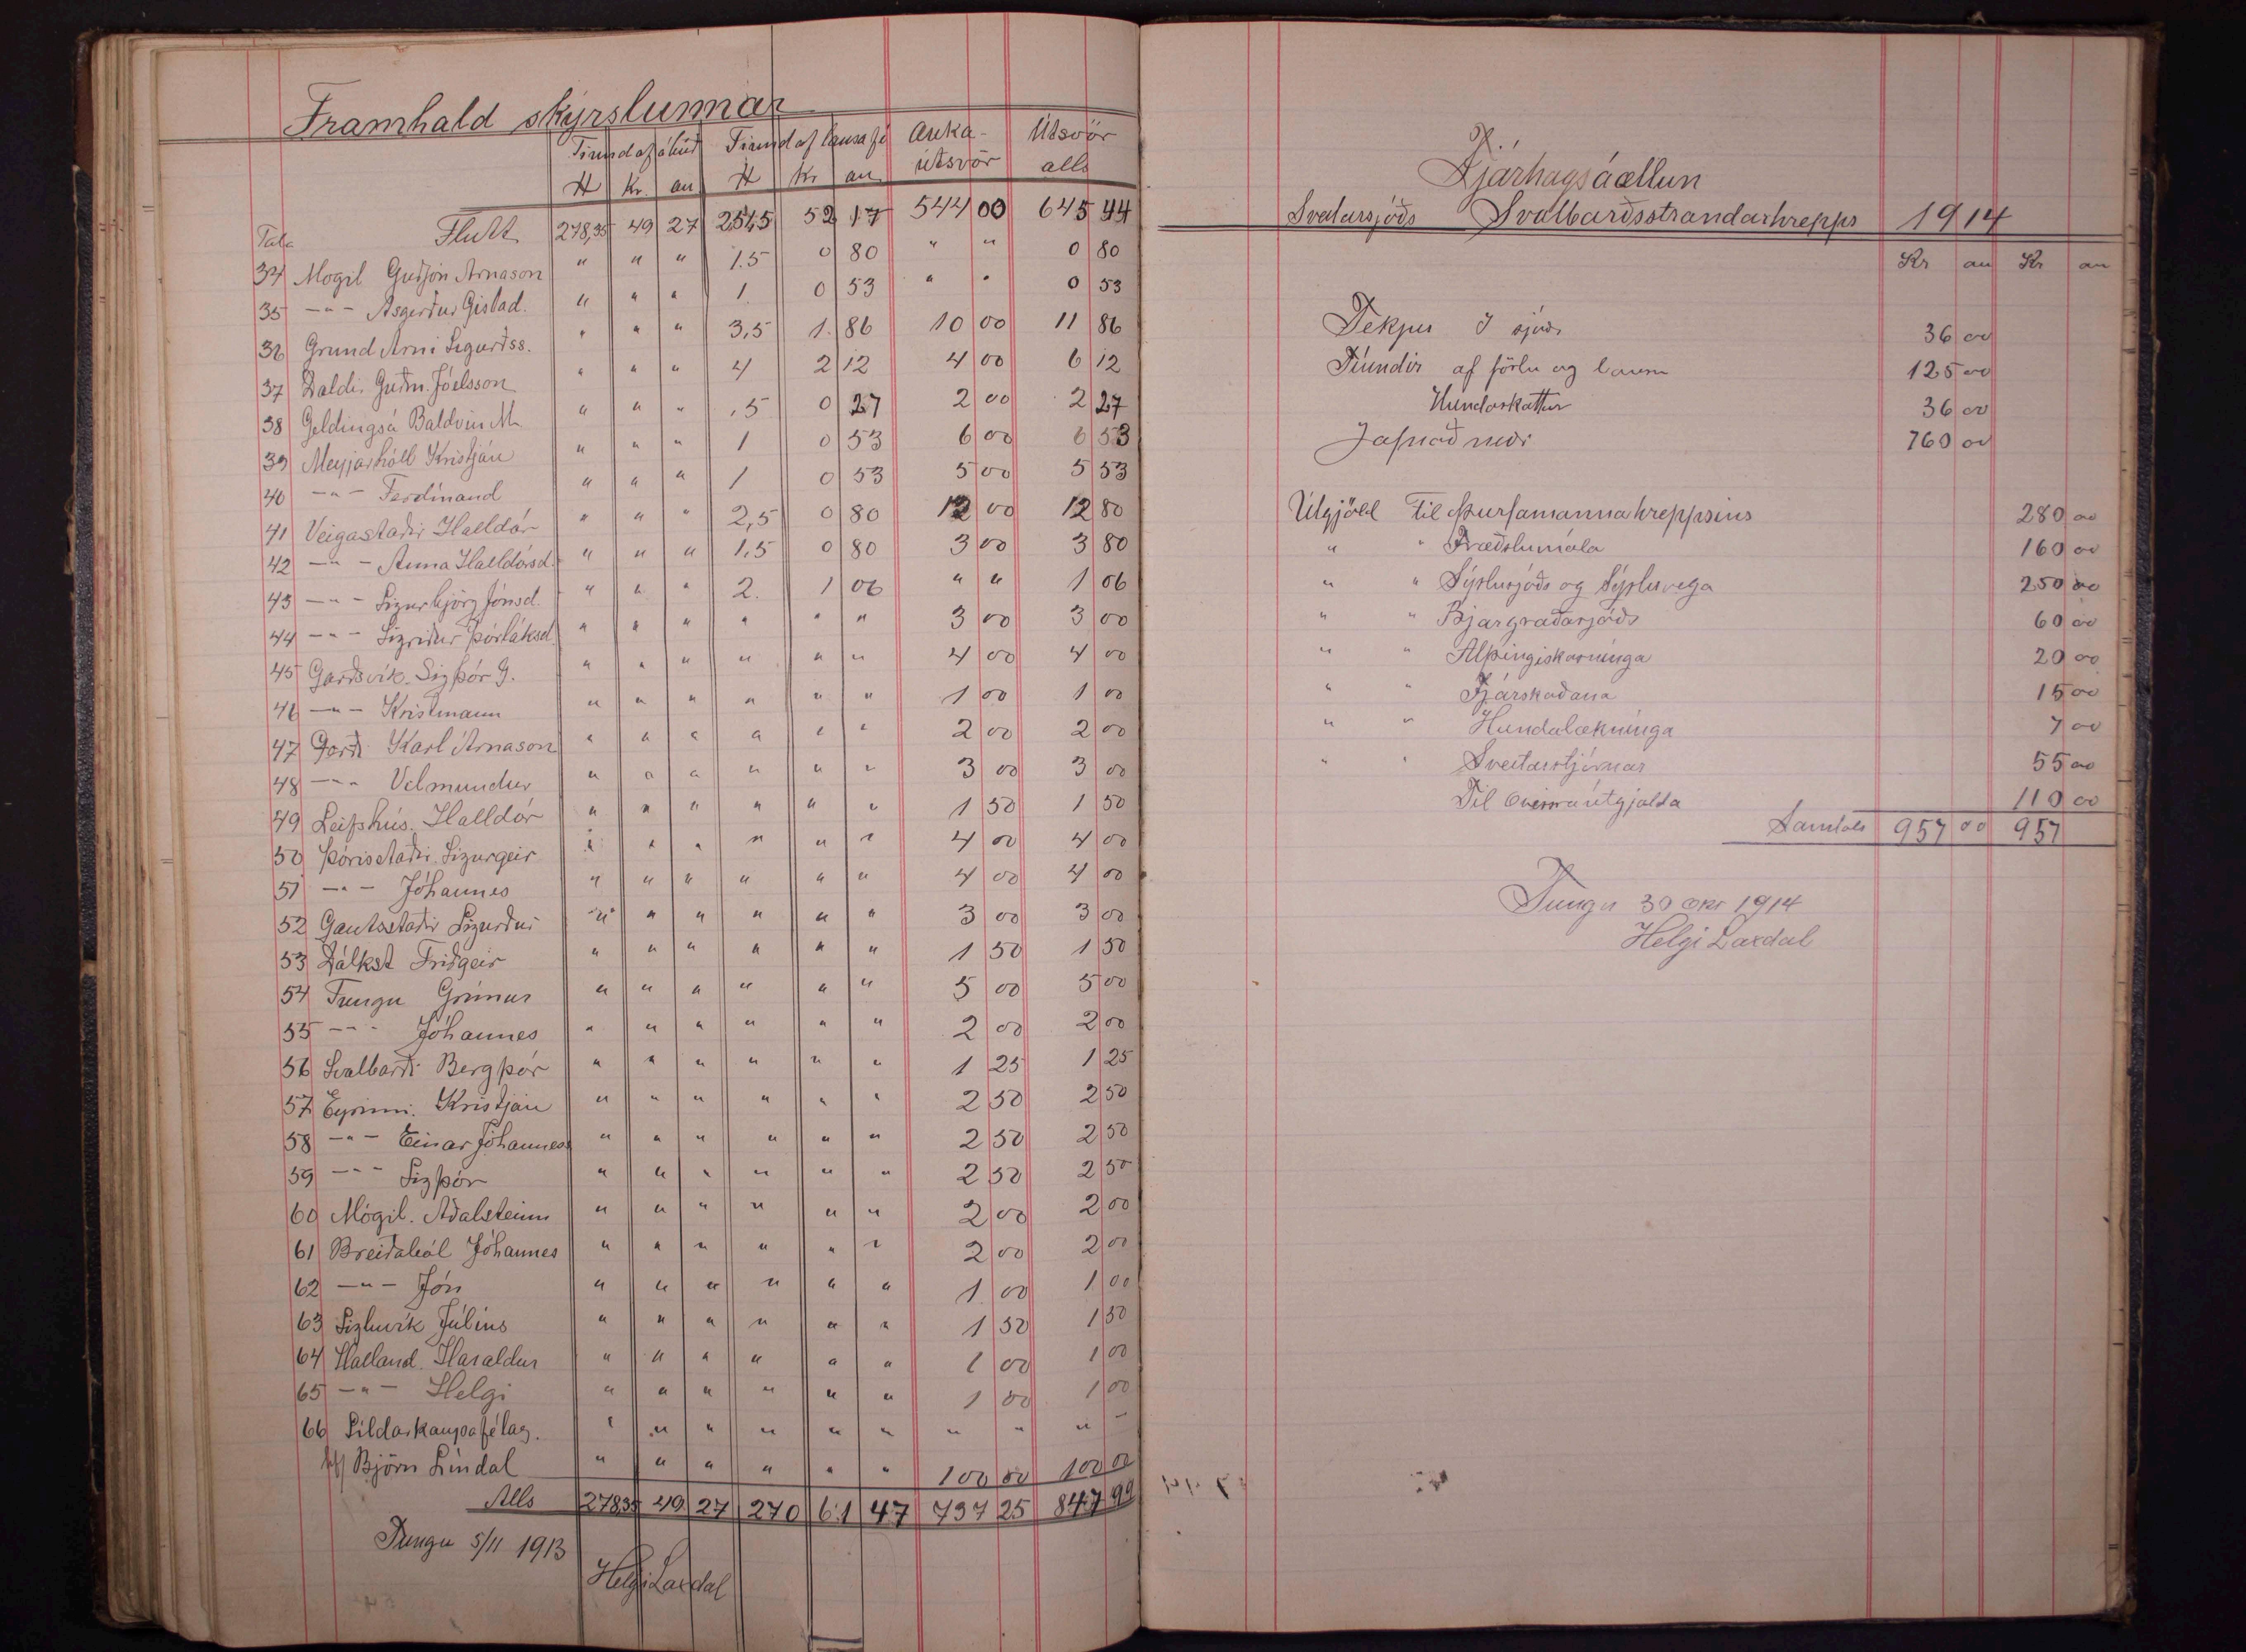 Framhald skýrslunnar
Tíund af ábúð Tíund af lausafé Auka- Útsvör
útsvör alls
H Kr. au H Kr au
Tala Flutt 278,35 49 27 254,5 52 17 544 00 645 44
34 Mógil Guðjón Árnason " " " 1.5 0 80 " " 0 80
35 -"- Ásgerður Gíslad. " " " 1 0 53 " " 0 53
36 Grund Árni Sigurðss. " " " 3,5 1 86 10 00 11 86
37 Dálki. Guðm. Jóelsson " " " 4 2 12 4 00 6 12
38 Geldingsá Baldvin M " " " ,5 0 27 2 00 2 27
39 Meyjarhóll Kristján " " " 1 0 53 6 00 6 53
40 -"- Ferdínand " " " 1 0 53 5 00 5 53
41 Veigastaðir Halldór " " " 2,5 0 80 12 00 12 80
42 -"- Anna Halldórsd. " " " 1,5 0 80 3 00 3 80
43 -"- Sigurbjörg Jónsd. " " " 2. 1 06 " " 1 06
44 -"- Sigríður Þorláksd. " " " " " " 3 00 3 00
45 Garðsvík. Sigþór J. " " " " " " 4 00 4 00
46 -"- Kristmann " " " " " " 1 00 1 00
47 Gerði Karl Árnason " " " " " " 2 00 2 00
48 -"- Velmundur " " " " " " 3 00 3 00
49 Leifshús. Halldór " " " " " " 1 50 1 50
50 Þórisstaðir. Sigurgeir " " " " " " 4 00 4 00
51 -"- Jóhannes " " " " " " 4 00 4 00
52 Gautsstaðir Sigurður " " " " " " 3 00 3 00
53 Dálkst Friðgeir " " " " " " 1 50 1 50
54 Tungu Grímur " " " " " " 5 00 5 00
55 -"- Jóhannes " " " " " " 2 00 2 00
56 Svalbarði Bergþór " " " " " " 1 25 1 25
57 Eyrinni. Kristján " " " " " " 2 50 2 50
58 -"- Einar Jóhanness " " " " " " 2 50 2 50
59 -"- Sigþór " " " " " " 2 50 2 50
60 Mógil. Aðalsteinn " " " " " " 2 00 2 00
61 Breiðaból Jóhannes " " " " " " 2 00 2 00
62 -"- Jón " " " " " " 1 00 1 00
63 Sigluvík Júlíus " " " " " " 1 50 1 50
64 Halland. Haraldur " " " " " " 1 00 1 00
65 -"- Helgi " " " " " " 1 00 1 00
66 Síldarkaupafélag. " " " " " " " " " -
Björn Líndal " " " " " " 100 00 100 00
Alls 278,35 49 27 270 61 47 737 25 847 99
Tungu 5/11 1913
Helgi Laxdal
Fjárhagsáætlun
Sveitarsjóðs Svalbarðsstrandarhrepps 1914
Kr au Kr au
Tekjur Í sjóði 36 00
Tíundir af föstu og lausu 125 00
Hundaskattur 36 00
Jafnað niður 760 00
Útgjöld Til þurfamanna hreppsins 280 00
" " Fræðslumála 160 00
" " Sýslusjóðs og Sýsluvega 250 00
" " Bjargráðasjóðs 60 00
" " Alþingiskosninga 20 00
" " Fjárskaðana 15 00
" " Hundalækninga 7 00
" " Sveitarstjórnar 55 00
Til Óvissra útgjalda 110 00
Samtals 957 00 957
Tungu 30 okt 1914
Helgi Laxdal